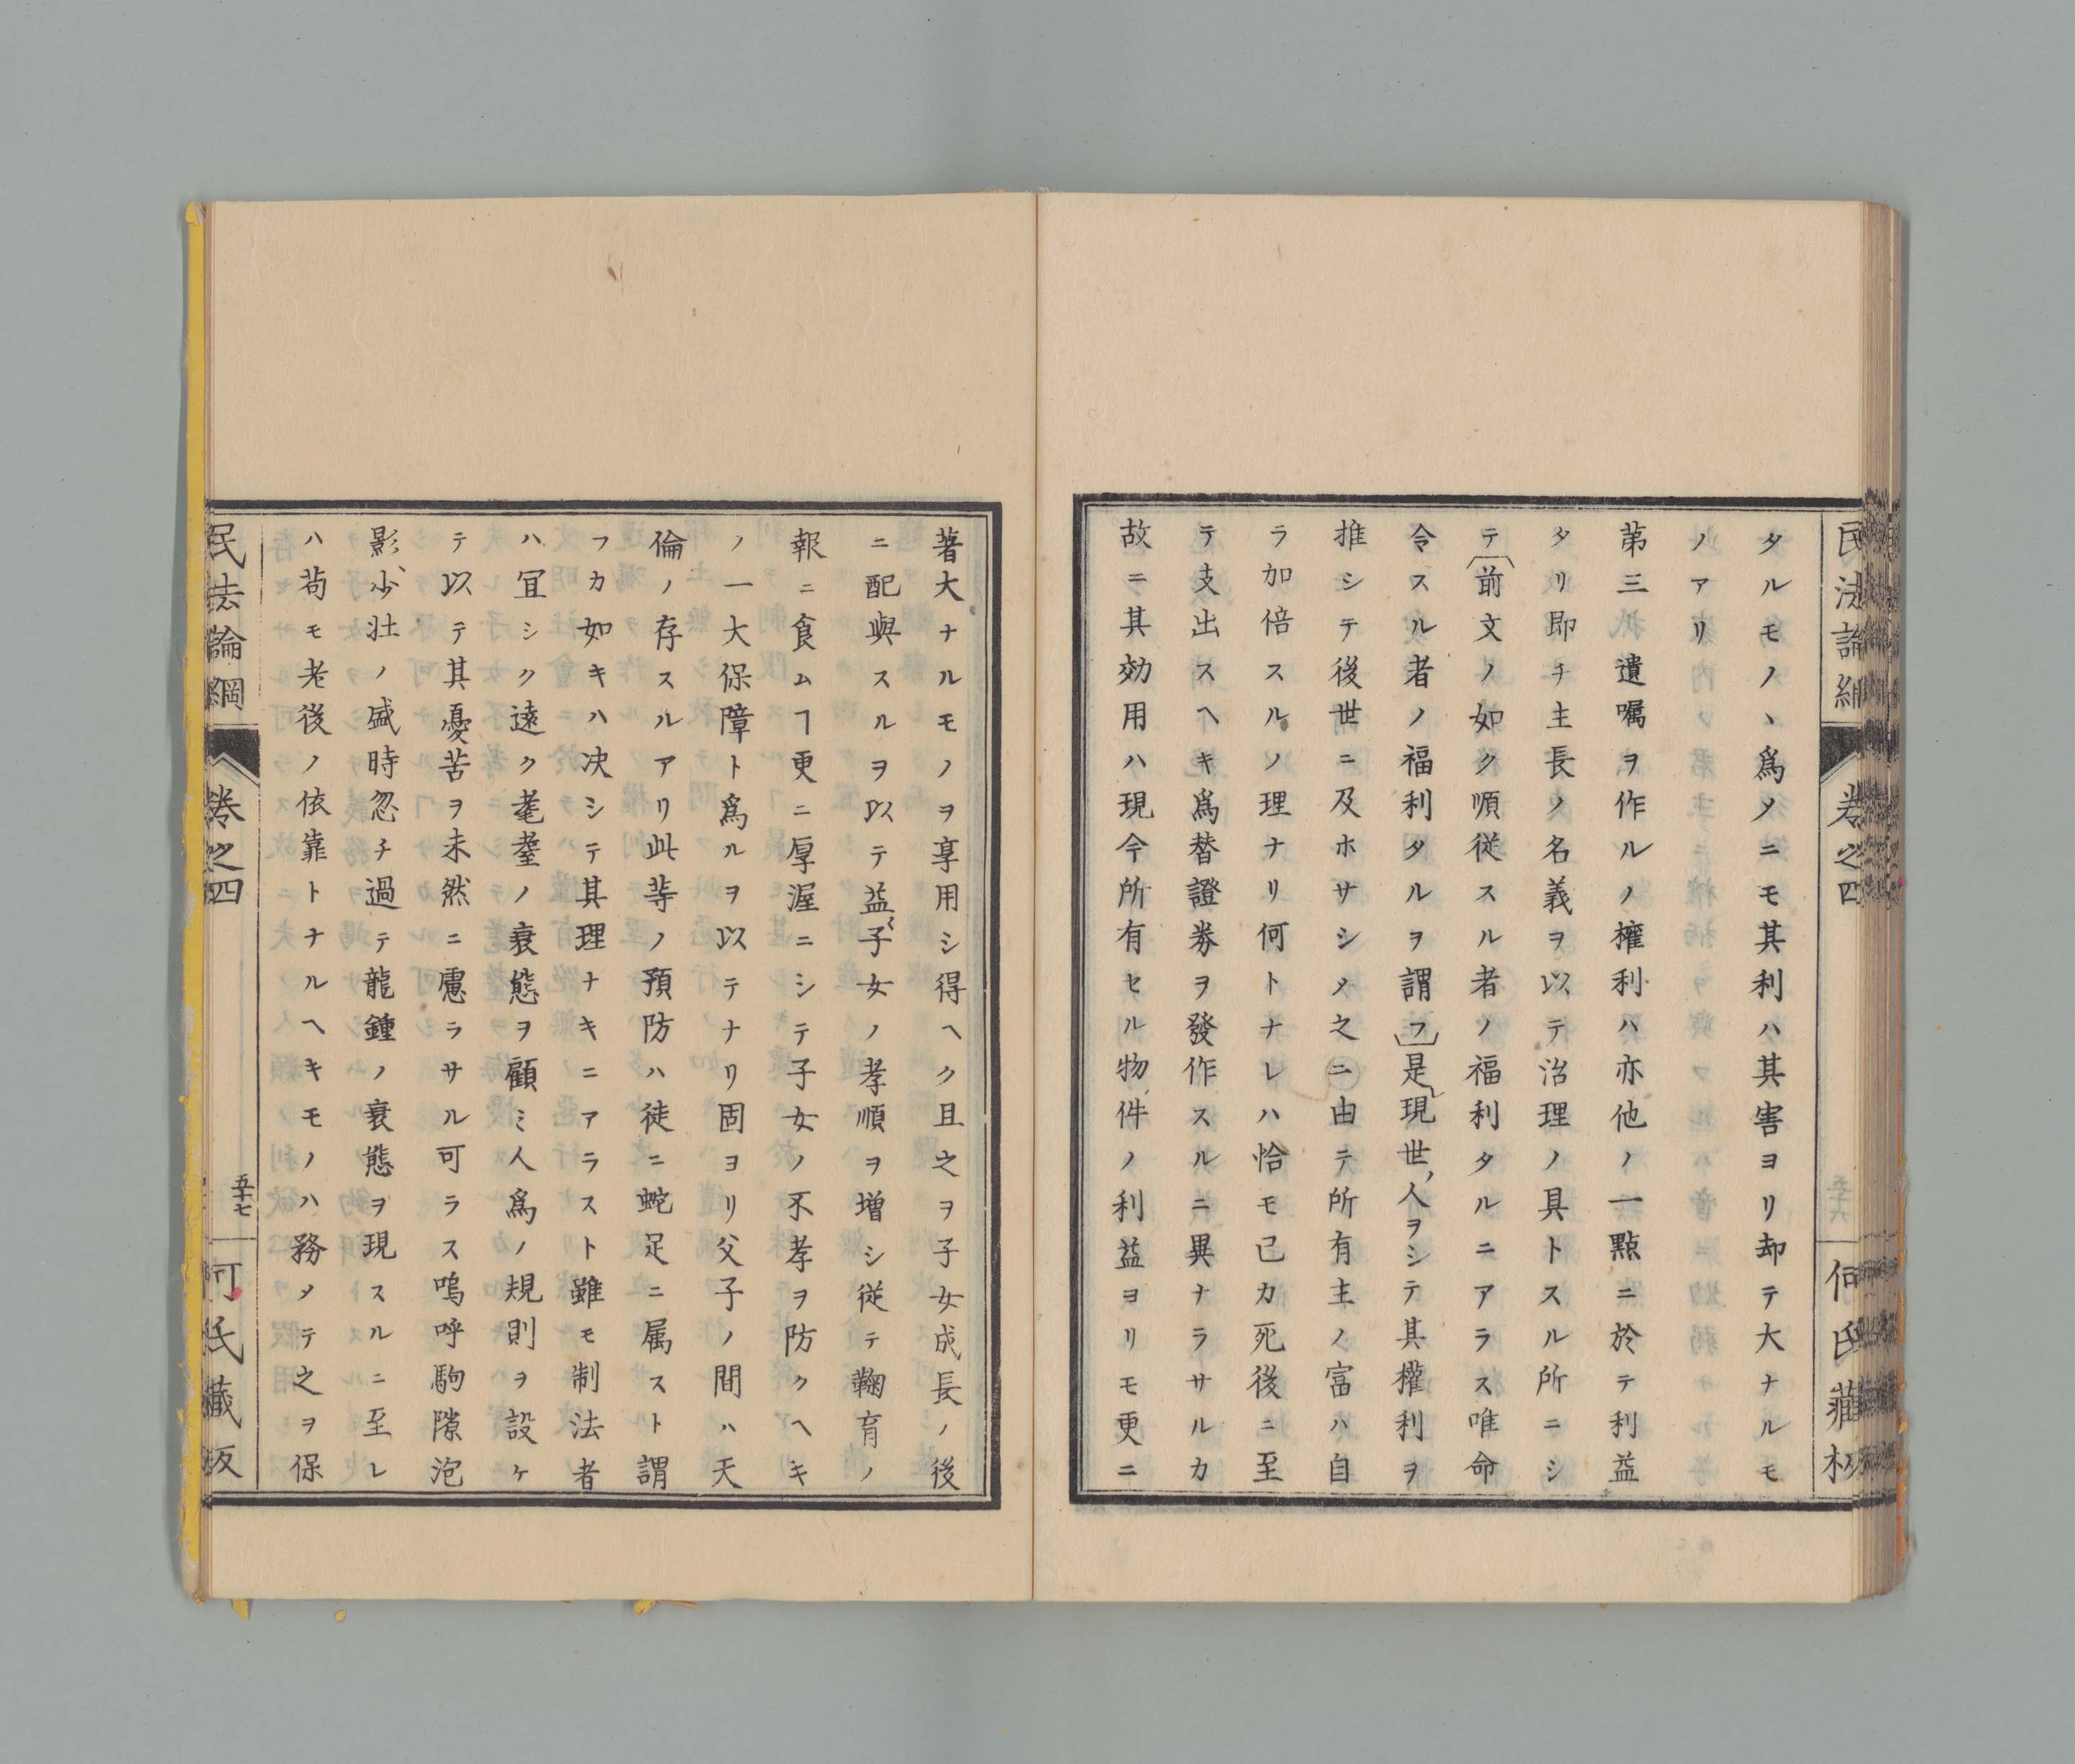 民法論綱
卷之四
何氏藏板
タルモノヽ爲メニモ其利ハ其害ヨリ却テ大ナルモ
ノアリ
第三遺囑ヲ作ルノ權利ハ亦他ノ一點ニ於テ利益
タリ即チ主長ノ名義ヲ以テ治理ノ具トスル所ニシ
テ前文ノ如ク順從スル者ノ福利タルニアラス唯命
令スル者ノ福利タルヲ謂フ是現世人ヲシテ其權利ヲ
推シテ後世ニ及ホサシメ之ニ由テ所有主ノ富ハ自
ラ加倍スルノ理ナリ何トナレハ恰モ己カ死後ニ至
テ支出スヘキ爲替證券ヲ發作スルニ異ナラサルカ
故ニ其効用ハ現今所有セル物件ノ利益ヨリモ更ニ
著大ナルモノヲ享用シ得ヘク且之ヲ子女成長ノ後
ニ配與スルヲ以テ益〻子女ノ孝順ヲ増シ從テ鞠育ノ
報ニ食ムヿ更ニ厚渥ニシテ子女ノ不孝ヲ防クヘキ
ノ一大保障ト爲ルヲ以テナリ固ヨリ父子ノ間ハ天
倫ノ存スルアリ此等ノ預防ハ徒ニ蛇足ニ属スト謂
フカ如キハ决シテ其理ナキニアラスト雖モ制法者
ハ冝シク遠ク耄耋ノ衰態ヲ顧ミ人爲ノ規則ヲ設ケ
テ以テ其憂苦ヲ未然ニ慮ラサル可ラス嗚呼駒隙泡
影、少壯ノ盛時忽チ過テ龍鍾ノ衰態ヲ現スルニ至レ
ハ茍モ老後ノ依靠トナルヘキモノハ務メテ之ヲ保
民法論綱
卷之四
五十七
何氏藏板